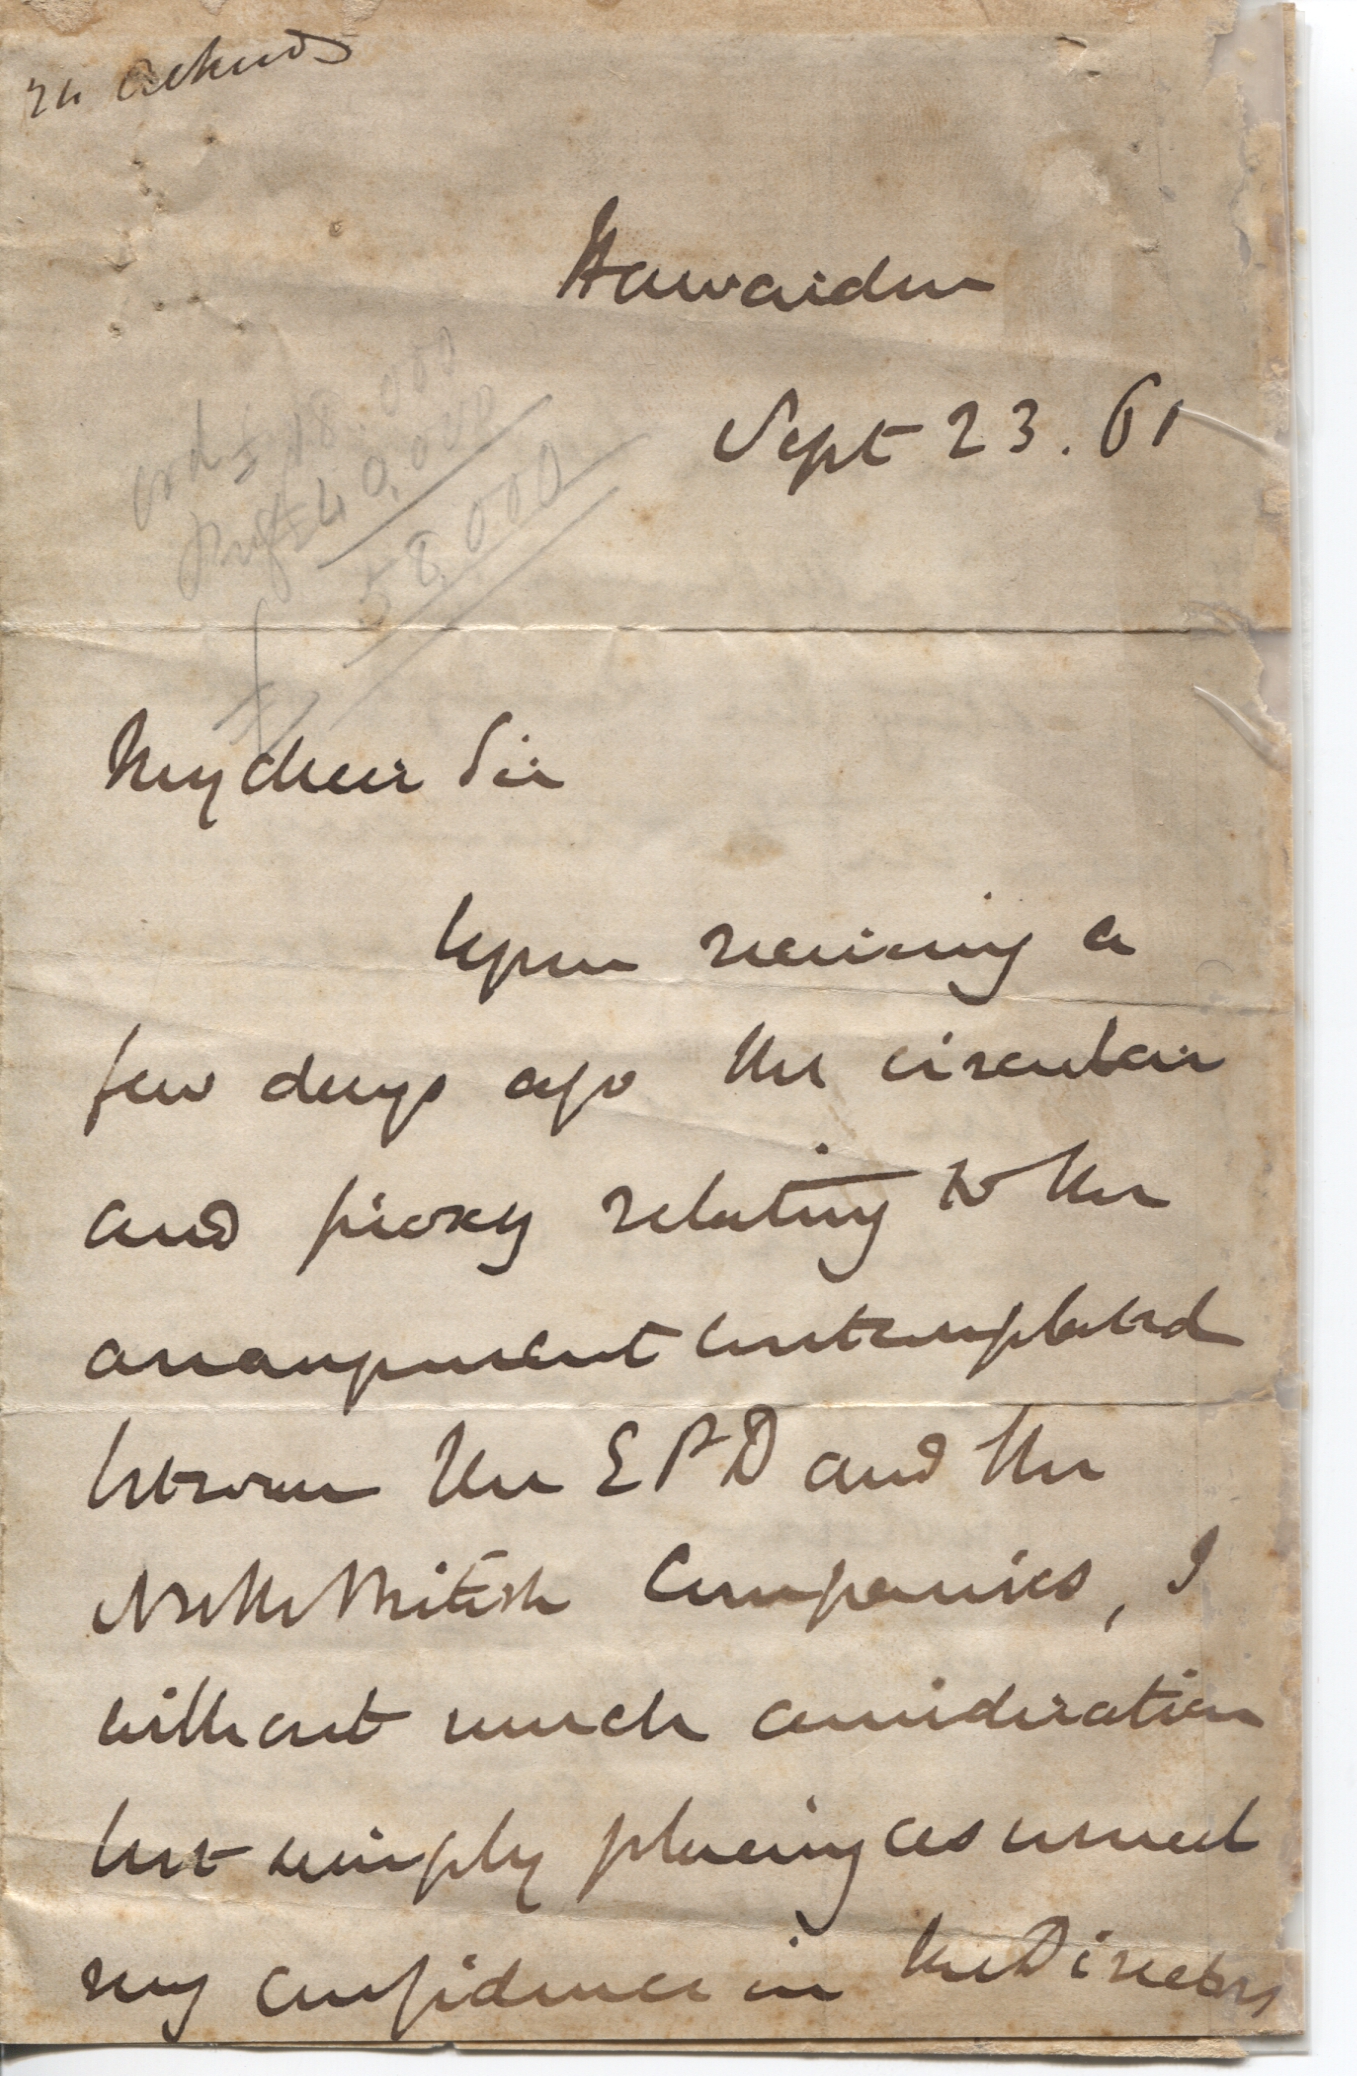 24 Ackend
Hawarden
Sept 23. 61
ord £ 18.000
Pref £ 40,000
£ 58,000
My dear Sir
Upon receiving a
few days ago the circular
and proxy relating to the
arrangement contemplated
between the E P D and the
North British Companies, I
without much consideration
but simply placing as usual
my confidence in the Directors